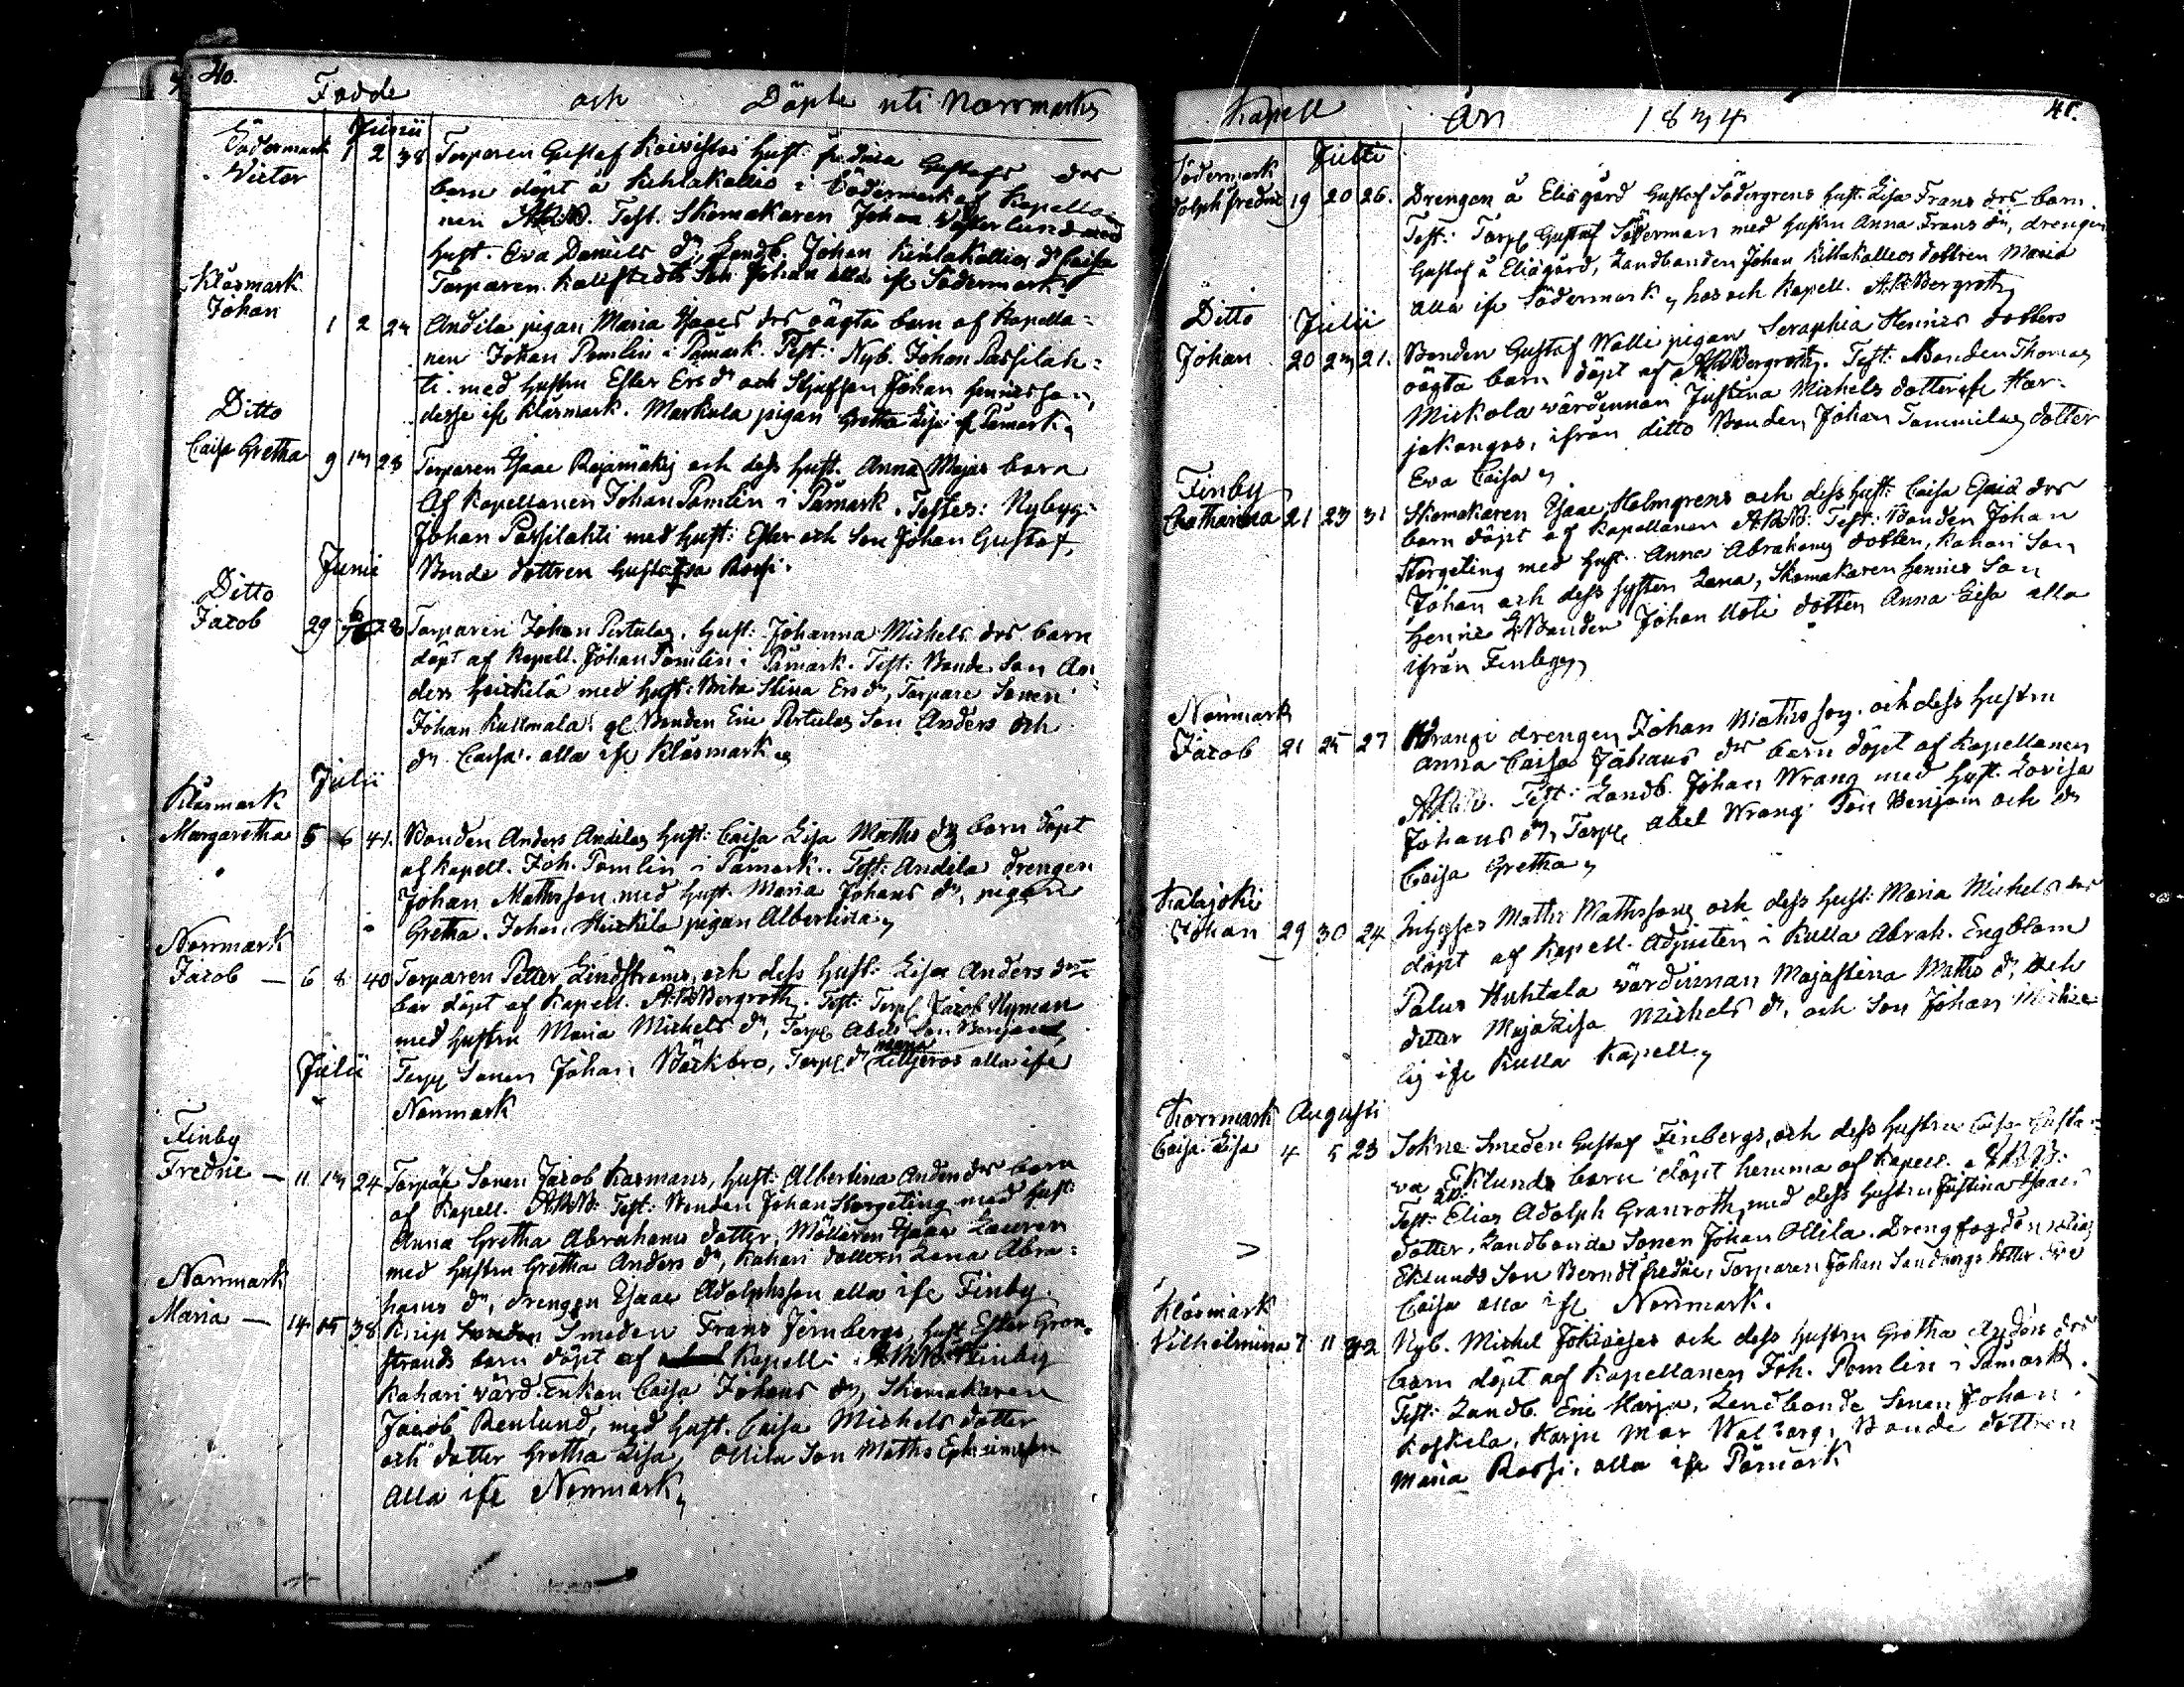 40.
Födde och Döpte uti Norrmarks
Junii
Södermark 1 2 38 Torparen Gustaf Koivistos Hust: Gustafs drs
Victor
barn döpt å Kihlakallio i Södermark af Kapella
nen A.R.B. Test. Skomakaren Johan Westerlund med
Hust. Eva Daniels dr, Landb. Johan Kiehlakallios dr Caisa
Torparen Kallstedts Son Johan alla ifr Södermark
Klåsmark
Johan 1 2 Andila pigan Maria Isaacs drs oägta barn af Kapella-
nen Johan Pomlin i Påmark. Test: Nyb. Johan Passilah-
ti med Hustru Ester Ers dr och Styfson Johan Henricsson,
desse ifr Klåsmark. Markula pigan Gretha Lisa ifr Påmark
Ditto
Caisa Gretha 9 Torparen Isaac Rajamäkis och dess Hust. Anna Majas barn
Af Kapellanen Johan Pomlin i Påmark. Testes: Nybyg:
Johan Passilahti med Hust: Ester och Son Johan Gustaf,
Junii Bonde dottren Gustafva Rossi.
Ditto
Jacob 29 Torparen Johan Pertulas Hust: Johanna Michels drs barn
döpt af Kapell. Johan Pomlin i Påmark. Test: Bonde Son An-
ders Heickilä med Hust: Brita Stina Ers dr, Torpare Sonen
Johan Kullmala, gl Bonden Eric Pertulas Son Anders och
dr Caisa. alla ifr Klåsmark
Julii
Klåsmark
Margaretha 5 6 41. Bonden Anders Andilas Hust: Caisa Lisa Maths drs barn döpt
af Kapell. Joh. Pomlin i Påmark. Test: Andila drengen
Johan Mathsson med Hust. Maria Johans dr, pigan
Gretha Johan, Heickila pigan Albertina
Norrmark
Jacob — 6 8 40 Torparen Petter Lindströms och dess Hust: Lisa Anders drs
bar döpt af Kapell. A.R.Bergroth. Test: Torp. Jacob Nyman
med Hustru Maria Michels dr, Torp Abels Son Benjam
Julii Torp Sonen Johan Bäckbro, Torp dr Maria Lilljeros alla ifr
Norrmark
Finby
Fredric — 11 24 Torpare Sonen Jacob Kasmans, Hust: Albertina Anders drs barn
af Kapell. A.R.B. Test: Bonden Johan Storgeting med Hust:
Anna Gretha Abrahams dotter, Möllaren Isaac Lauren
med Hustru Gretha Anders dr, Kahari dottern Lena Abra-
hams dr, drengen Isaac Adolphsson alla ifr Finby.
Norrmark
Maria — 14 15 38 Knip Smeden Frans Jernbergs, Hust Ester Gron-
strands barn döpt af Kapell: A.R.B. Finby
Kahari värd. Enkan Caisa Johans dr, Skomakaren
Jacob Renlund, med Hust. Caisa Michels dotter
och dotter Gretha Lisa, Ollila Son Maths Ephraimsson
Alla ifr Norrmark
Kapell År 1834 41.
Södermark Julii
Adolph Fredric 19 20 26. Drengen å Eliägård Gustaf Södergrens Hust. Lisa Frans drs barn.
Test: Torp Gustaf Söderman med Hustru Anna Frans dr, drengen
Gustaf å Eliägård, Landbonden Johan Killakallios dottren Maria
alla ifr Södermark, hos och Kapell. A.R.Bergroth
Ditto Julii
Johan 20 21. Bonden Gustaf Walli pigan Seraphia Henrics dotters
oägta barn döpt af A.R.Bergroth. Test: Bonden Thomas
Mickola wärdinnan Justina Michels dotter ifr Har-
jakangas, ifrån ditto Bonden Johan Tommilas dotter
Eva Caisa
Finby
Catharina 21 23 31 Skomakaren Isaac Holmgrens och dess Hust: Caisa Esaias drs
barn döpt af Kapellanen A.R.B. Test: Bonden Johan
Storgeting med Hust. Anna Abrahams dotter, Kahari Son
Johan och dess syster Lena, Skomakaren Henrics Son
Henric & Bonden Johan Uoti dotter Anna Lisa alla
ifrån Finby
Norrmark
Jacob 21 25 27 Wrangi drengen Johan Mathsson och dess Hustru
Anna Caisa Johans drs barn döpt af Kapellanen
A.R.B. Test: Landb. Johan Wrang med Hust. Lovisa
Johans dr, Torp Abel Wrangi Son Benjam och dr
Caisa Gretha
Kalajoki
Johan 29 30 24 Inhyses Maths Mathssons och dess Hust: Maria Michels drs
döpt af Kapell. Adjuncten i Kulla Abrah. Engblom
Palus Huhtala värdinnan Majastina Maths dr, och
dotter Maja Lisa Michels dr, och Son Johan Michae
lis ifr Kulla Kapell
Norrmark Augusti
Caisa Lisa 4 5 23 Sokne Smeden Gustaf Finbergs, och dess Hustru Caisa Gusta-
va Eklunds barn döpt hemma af Kapell. A.R.B.
Test: Elias Adolph Granroth, med dess Hustru Justina Isaac
dotter, Landbonde Sonen Johan Ollila. Drengfogden Elias
Eklunds Son Berndt Fredric, Torparen Johan Sandbergs dotter Eva
Caisa alla ifr Norrmark.
Klåsmark
Vilhelmina 7 11 Nyb. Michel Jokisejas och dess Hustru Gretha Anders drs
barn döpt af Kapellanen Joh. Pomlin i Påmark.
Test: Landb. Eric Harja, Landbonde Sonen Johan
Koskela, Harju Mar Walborg, Bonde dottren
Maria Rossi, alla ifr Påmark